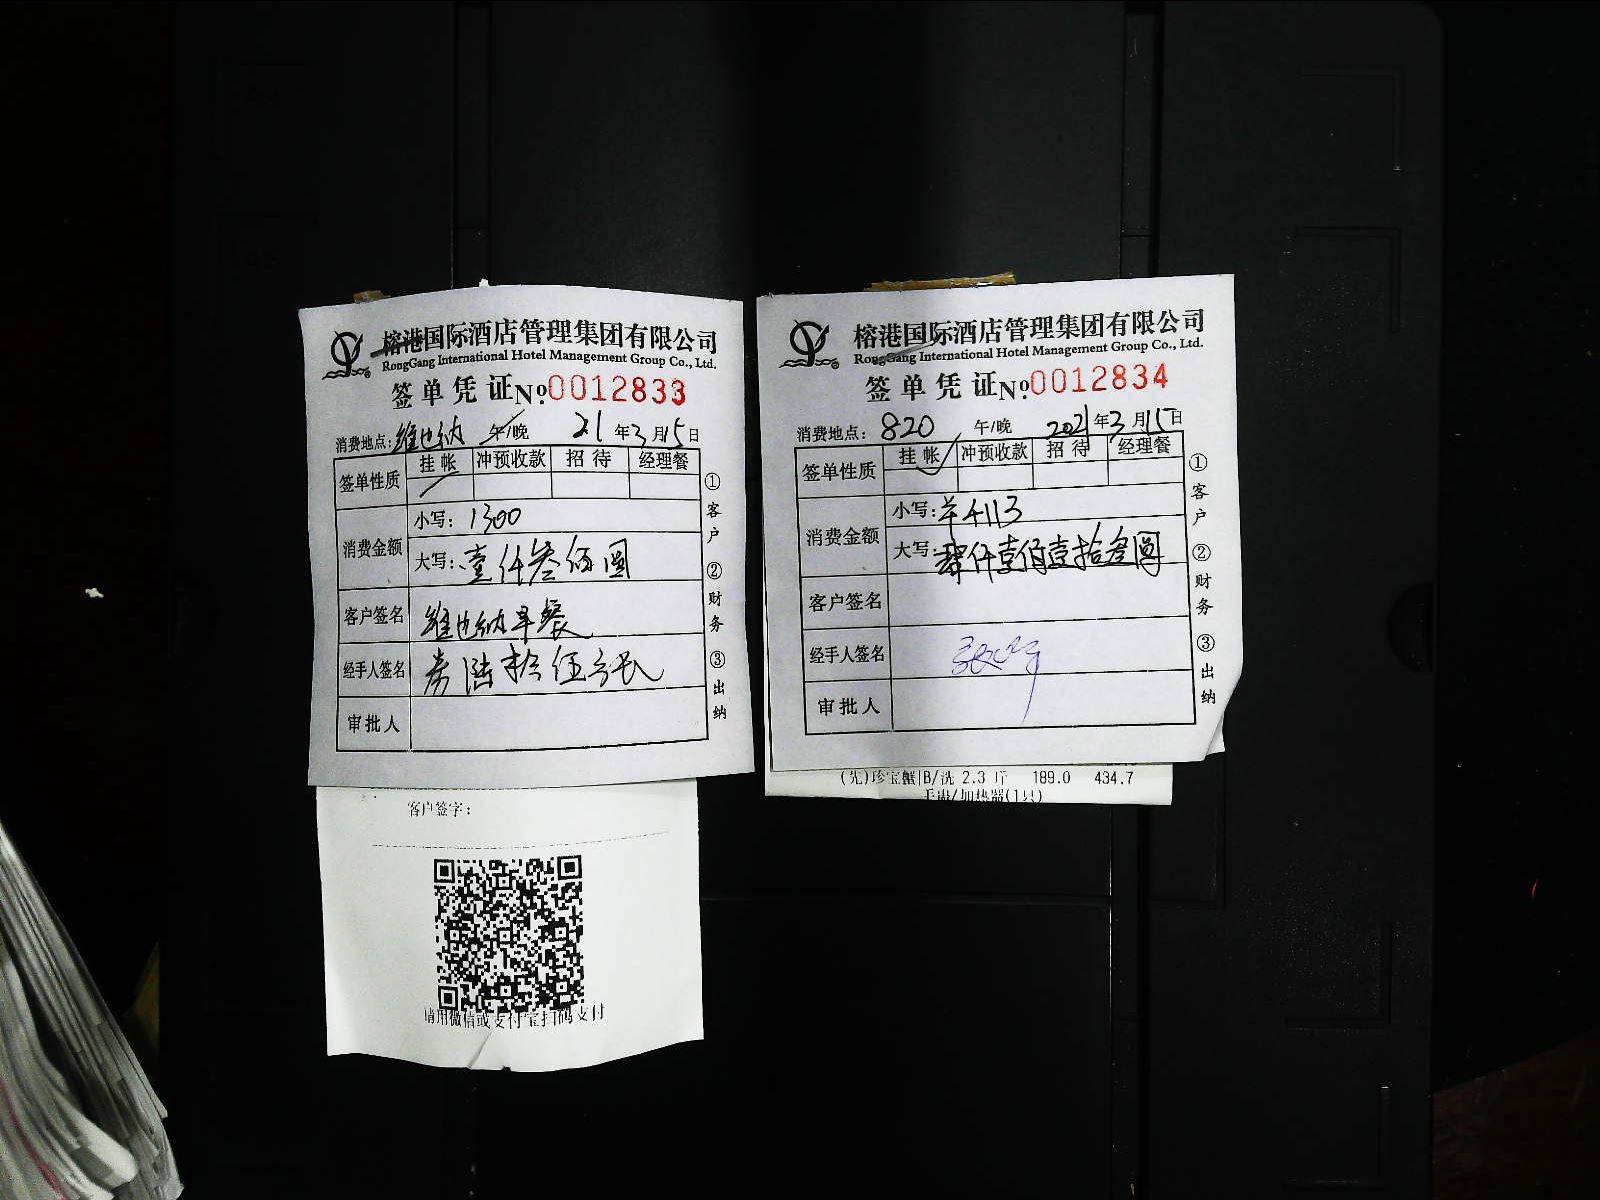 榕港国际酒店管理集团有限公司
RongGang International Hotel Management Group Co., Ltd.
签单凭证 No.0012833
消费地点: 维也纳 午/晚 21年3月15日
签单性质 挂帐 冲预收款 招待 经理餐
消费金额
小写: 1300
大写: 壹仟叁佰圆
客户签名 维也纳早餐
经手人签名 陆拾伍
审批人
①客户 ②财务 ③出纳
客户签字:
请用微信或支付宝扫码支付
榕港国际酒店管理集团有限公司
RongGang International Hotel Management Group Co., Ltd.
签单凭证 No.0012834
消费地点: 820 午/晚 2021年3月15日
签单性质 挂帐 冲预收款 招待 经理餐
消费金额
小写: 4113
大写: 肆仟壹佰壹拾叁圆
客户签名
经手人签名
审批人
①客户 ②财务 ③出纳
(先)珍宝蟹|B/洗 2.3 斤 189.0 434.7